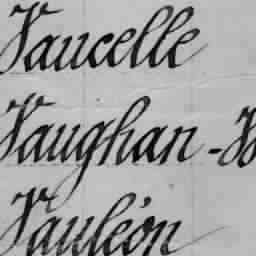 Vaucelle
Vaughan -
Vauléon